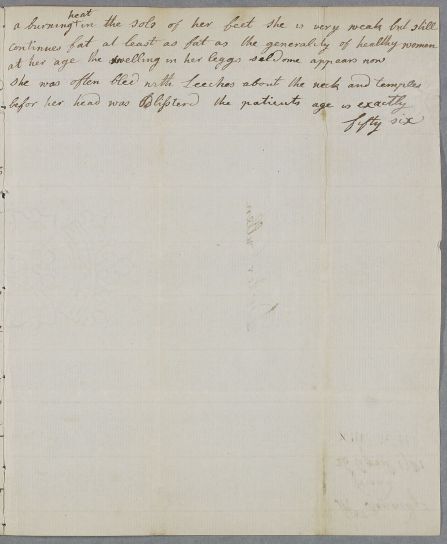 heat
a burning in the sols of her feet she is very weak but still
continues fat, at least as fat as the generality of healthy women
at her age the swelling in her leggs seldome appears now
she was often bled with Leeches about the neck and temples
befor her head was Blisterd the patients age is exactly
fifty six